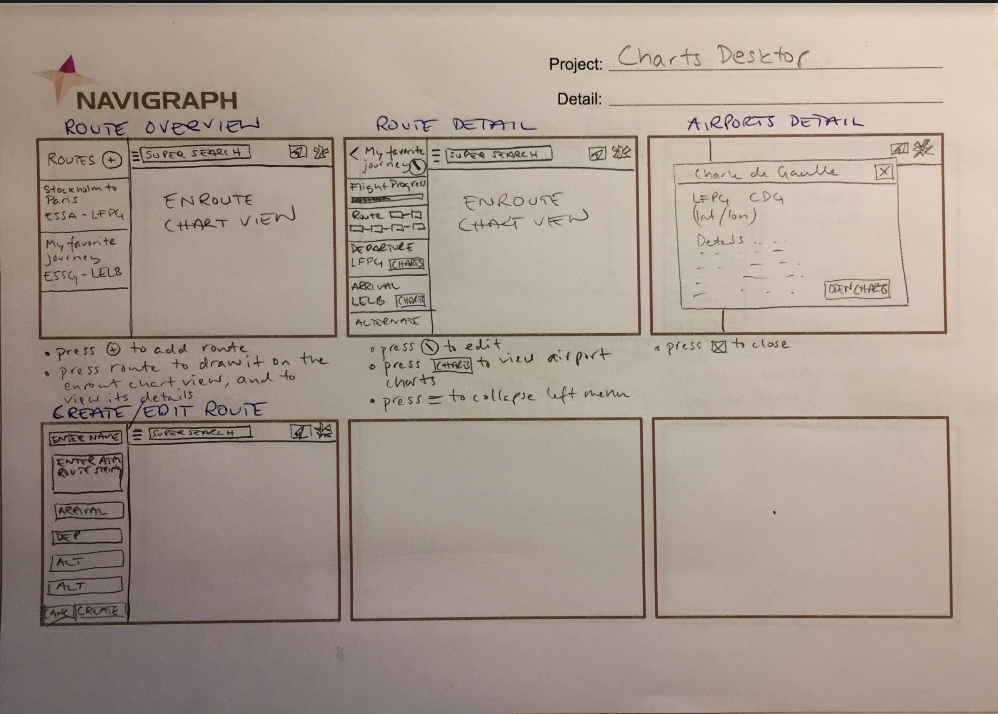 NAVIGRAPH
Project: Charts Desktop
Detail:
ROUTE OVERVIEW
ROUTES +
SUPER SEARCH
Stockholm to
Paris
ESSA - LFPG
My favorite
Journey
ESSG - LELB
ENROUTE
CHART VIEW
• press + to add route
• press route to draw it on the
enrout chart view, and to
view its details
ROUTE DETAIL
< My favorite
journey
SUPER SEARCH
Flight Progress
Route
DEPARTURE
LFPG CHARTS
ARRIVAL
LELB CHARTS
ALTERNATE
ENROUTE
CHART VIEW
• press to edit
• press CHARTS to view airport
charts
• press = to collapse left menu
AIRPORTS DETAIL
Charle de Gaulle X
LFPG CDG
(lat/lon)
Details
OPEN CHARTS
• press X to close
CREATE / EDIT ROUTE
ENTER NAME
SUPER SEARCH
ENTER ATM
ROUTE STRING
ARRIVAL
DEP
ALT
ALT
CANC CREATE